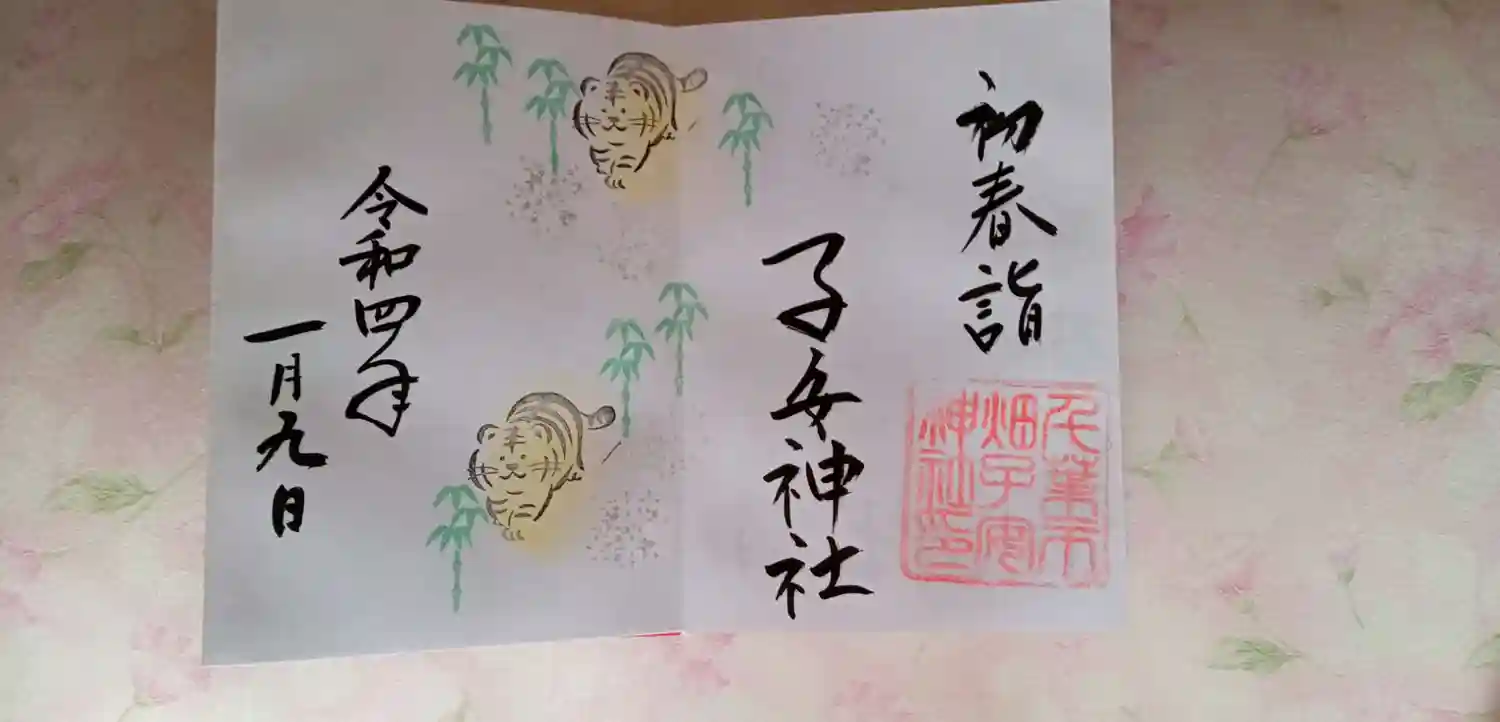 初春詣
千葉市
畑子安
神社印
子安神社
令和四年
一月九日